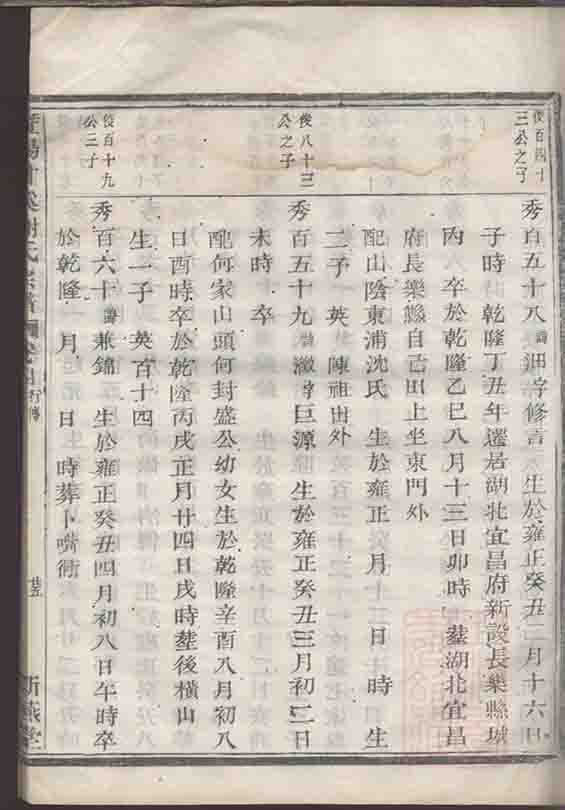 俊百四十
三公之子
秀百五十八諱 字修言 生於雍正癸丑二月十六日
子時 乾隆丁丑年遷居湖北宜昌府新設長樂縣城
內 卒於乾隆乙巳八月十三日卯時 塟湖北宜昌
府長樂縣自己田上坐東門外
配山陰東浦沈氏 生於雍正 月 日 時 生
二子 英 陳祖出外
俊八十三
公之子
秀百五十九諱瀫字巨源 生於雍正癸丑三月初二日
未時 卒
配何家山頭何封盛公幼女生於乾隆辛酉八月初八
日酉時卒於乾隆丙戌正月廿四日戌時塟後橫山
生一子 英百十四
俊百十九
公三子
秀百六十諱兼錦 生於雍正癸丑四月初八日午時卒
於乾隆 月 日 時葬卜嘴衕
氏宗譜
行傳
廿五